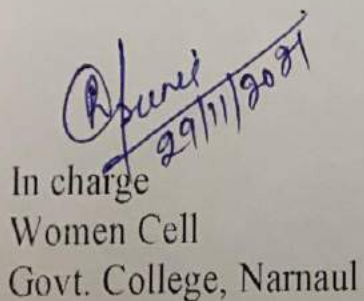 29/11/2021
In charge
Women Cell
Govt. College, Narnaul